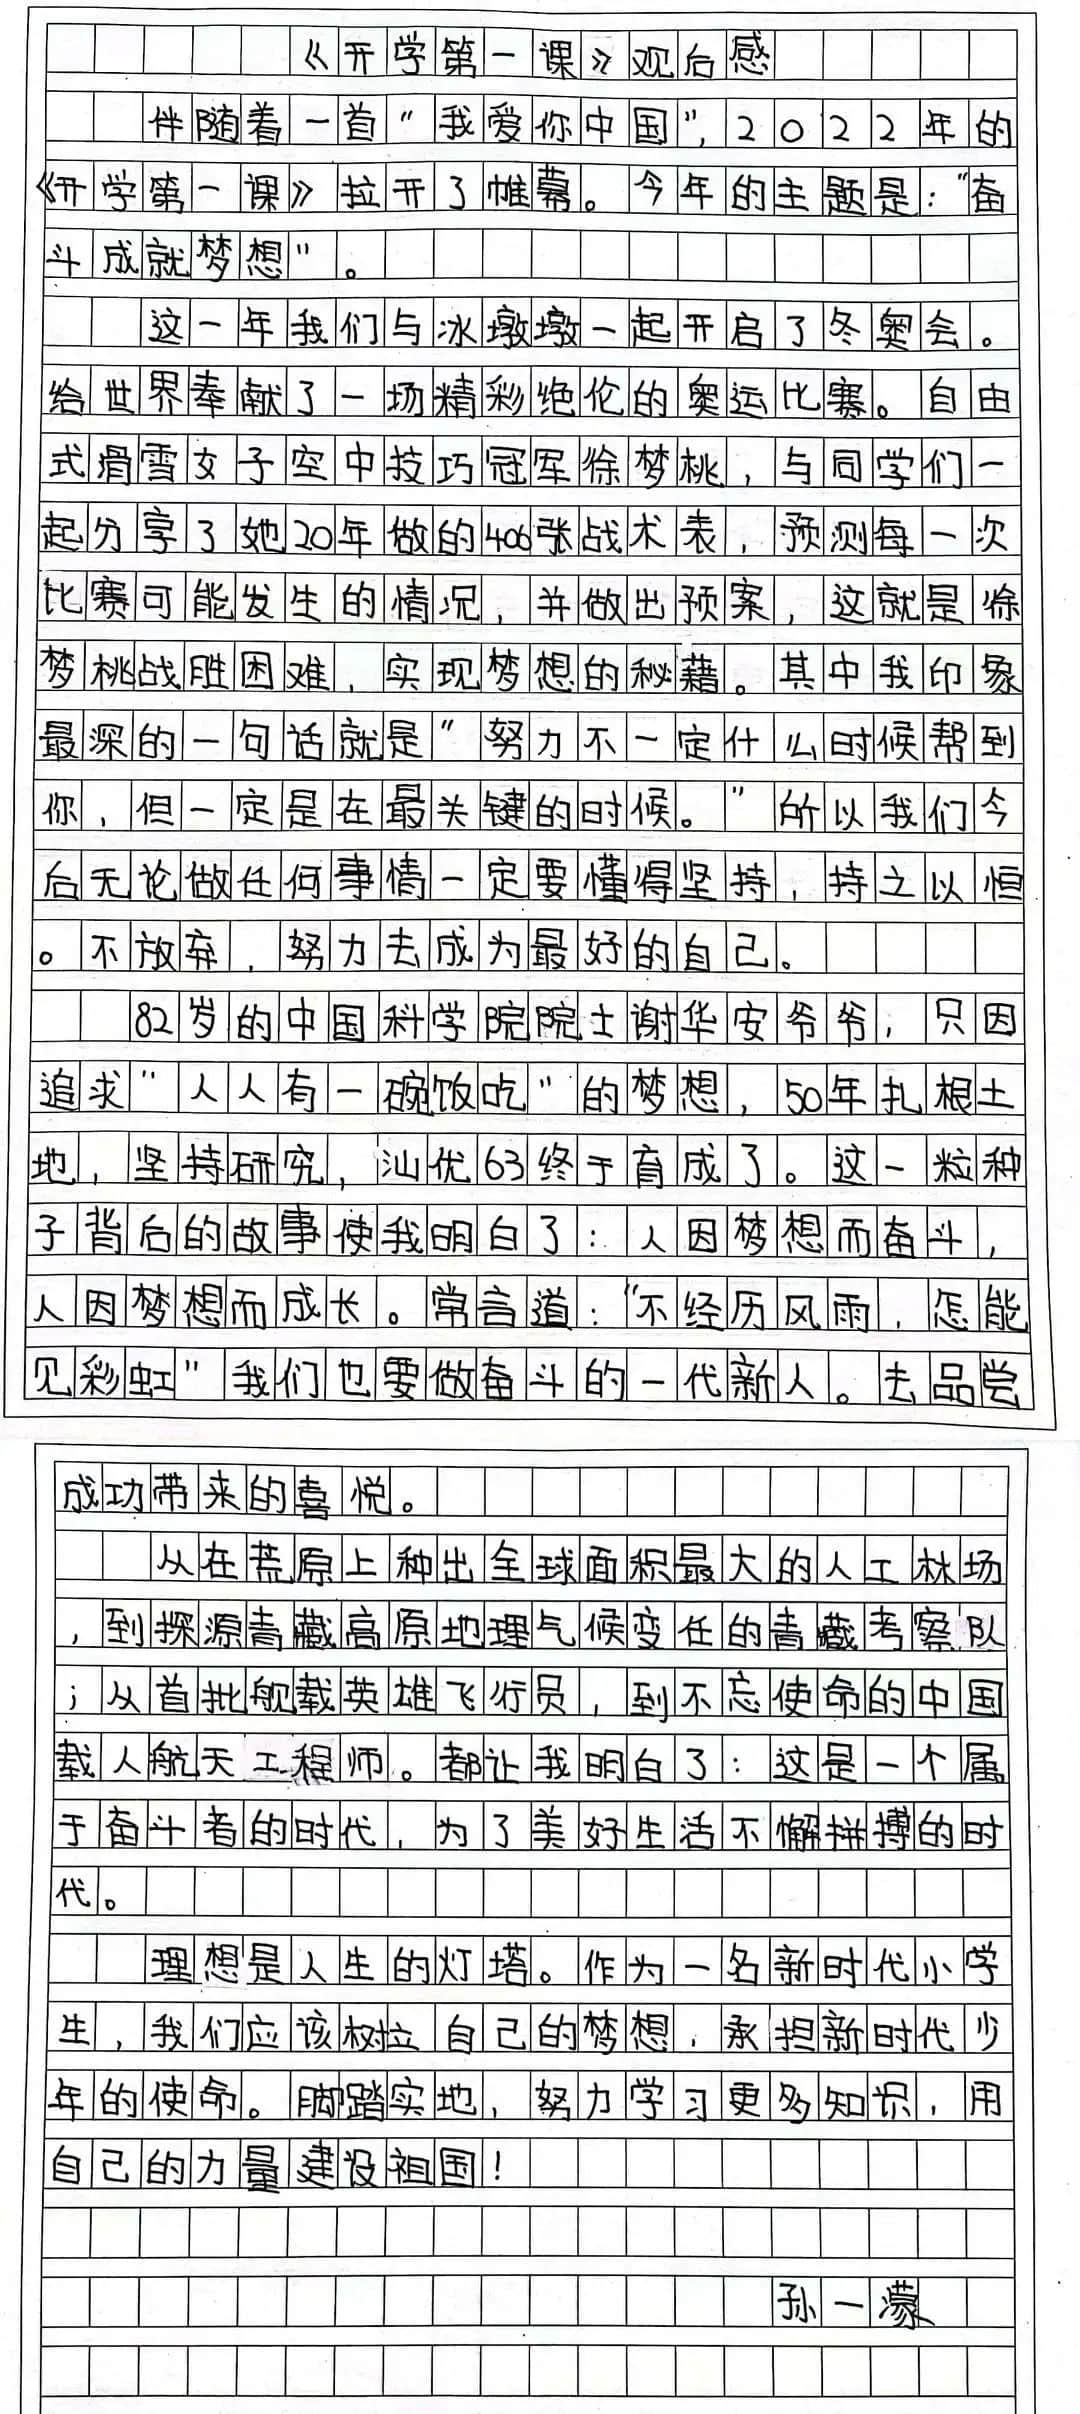 《开学第一课》观后感
伴随着一首“我爱你中国”,2022年的
《开学第一课》拉开了帷幕。今年的主题是:“奋
斗成就梦想”。
这一年我们与冰墩墩一起开启了冬奥会。
给世界奉献了一场精彩绝伦的奥运比赛。自由
式滑雪女子空中技巧冠军徐梦桃,与同学们一
起分享了她20年做的406张战术表,预测每一次
比赛可能发生的情况,并做出预案,这就是徐
梦桃战胜困难,实现梦想的秘籍。其中我印象
最深的一句话就是“努力不一定什么时候帮到
你,但一定是在最关键的时候。”所以我们今
后无论做任何事情一定要懂得坚持,持之以恒
。不放弃,努力去成为最好的自己。
82岁的中国科学院院士谢华安爷爷,只因
追求“人人有一碗饭吃”的梦想,50年扎根土
地,坚持研究,汕优63终于育成了。这一粒种
子背后的故事使我明白了:人因梦想而奋斗,
人因梦想而成长。常言道:“不经历风雨,怎能
见彩虹”我们也要做奋斗的一代新人。去品尝
成功带来的喜悦。
从在荒原上种出全球面积最大的人工林场
,到探源青藏高原地理气候变任的青藏考察队
;从首批舰载英雄飞行员,到不忘使命的中国
载人航天工程师。都让我明白了:这是一个属
于奋斗者的时代,为了美好生活不懈拼搏的时
代。
理想是人生的灯塔。作为一名新时代小学
生,我们应该树立自己的梦想,承担新时代少
年的使命。脚踏实地,努力学习更多知识,用
自己的力量建设祖国!
孙一濛